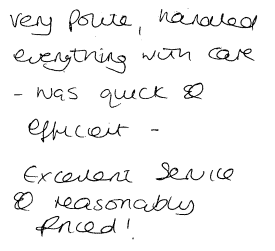 very polite, handled
everything with care
- was quick &
efficient -
Excellent Service
& reasonably
priced!